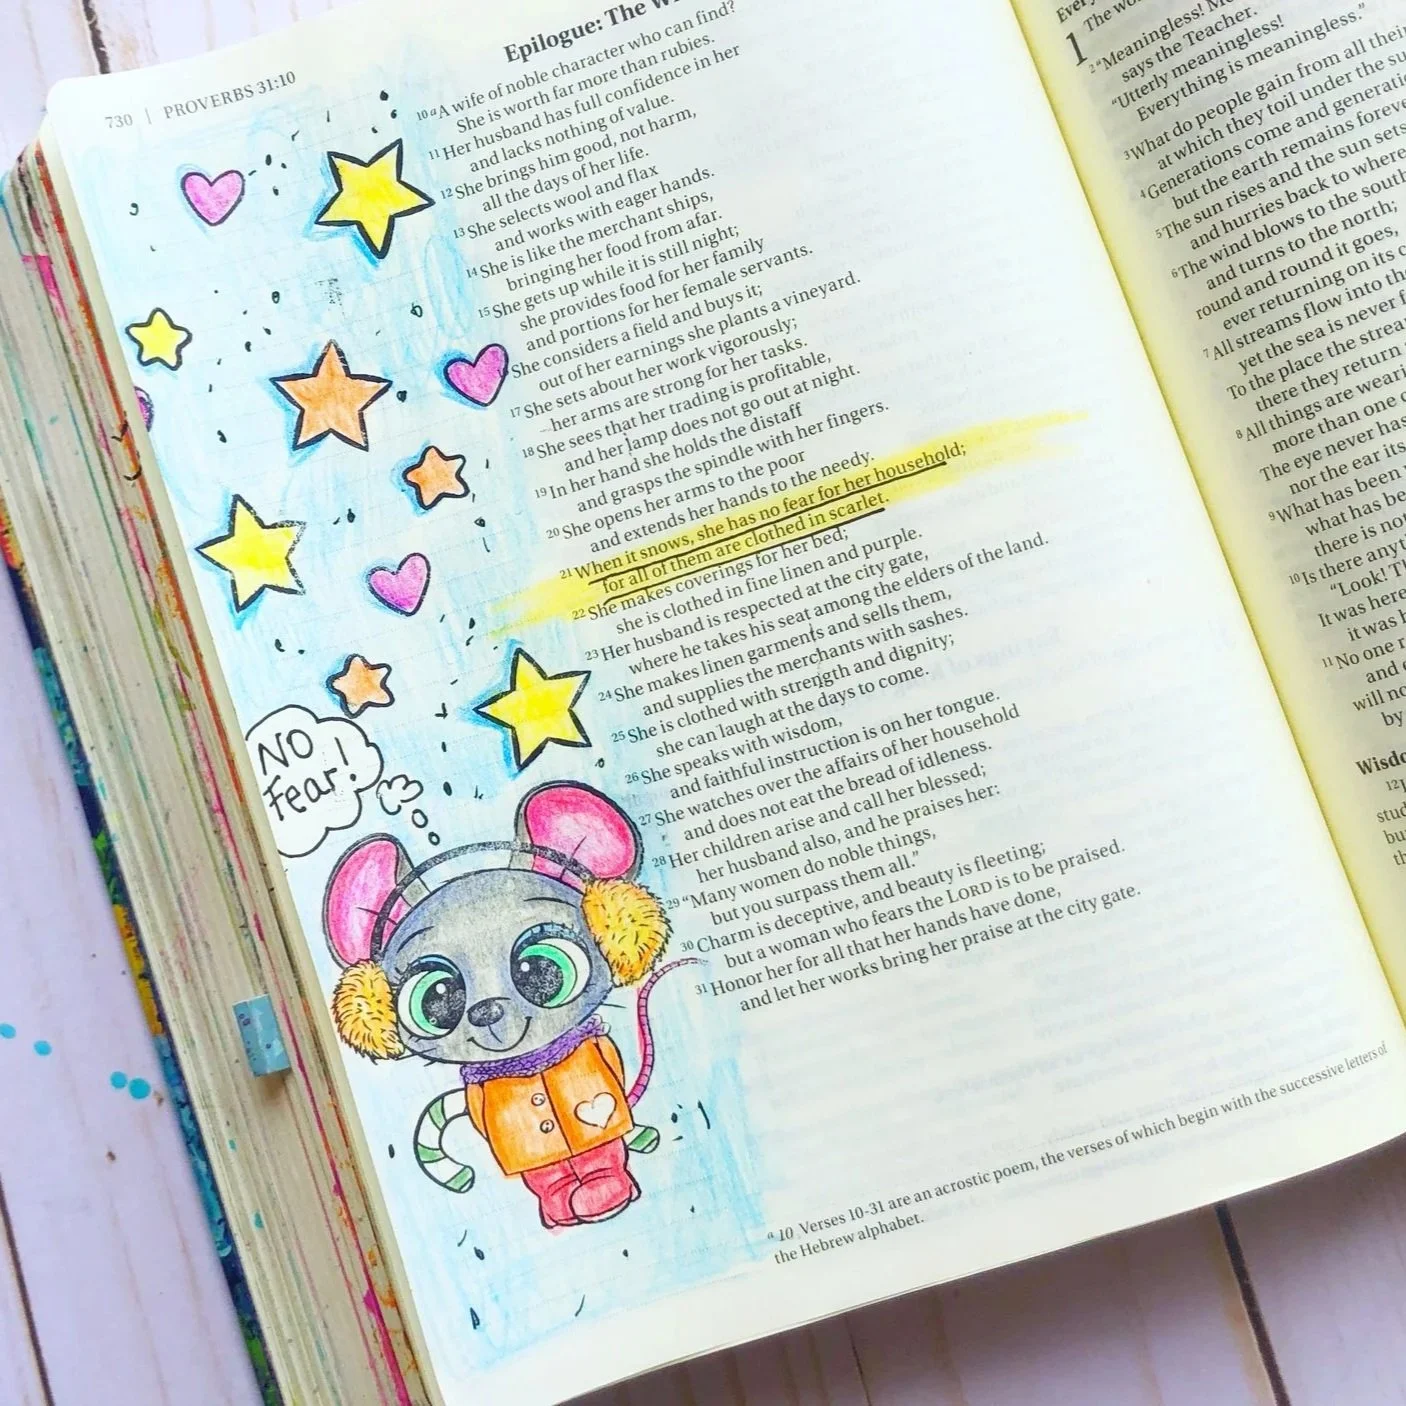 730 | PROVERBS 31:10
Epilogue: The
10 a A wife of noble character who can find?
She is worth far more than rubies.
11 Her husband has full confidence in her
and lacks nothing of value.
12 She brings him good, not harm,
all the days of her life.
13 She selects wool and flax
and works with eager hands.
14 She is like the merchant ships,
bringing her food from afar.
15 She gets up while it is still night;
she provides food for her family
and portions for her female servants.
She considers a field and buys it;
out of her earnings she plants a vineyard.
17 She sets about her work vigorously;
her arms are strong for her tasks.
18 She sees that her trading is profitable,
and her lamp does not go out at night.
19 In her hand she holds the distaff
and grasps the spindle with her fingers.
20 She opens her arms to the poor
and extends her hands to the needy.
21 When it snows, she has no fear for her household;
for all of them are clothed in scarlet.
22 She makes coverings for her bed;
she is clothed in fine linen and purple.
23 Her husband is respected at the city gate,
where he takes his seat among the elders of the land.
24 She makes linen garments and sells them,
and supplies the merchants with sashes.
25 She is clothed with strength and dignity;
she can laugh at the days to come.
26 She speaks with wisdom,
and faithful instruction is on her tongue.
27 She watches over the affairs of her household
and does not eat the bread of idleness.
28 Her children arise and call her blessed;
her husband also, and he praises her:
29 “Many women do noble things,
but you surpass them all.”
30 Charm is deceptive, and beauty is fleeting;
but a woman who fears the LORD is to be praised.
31 Honor her for all that her hands have done,
and let her works bring her praise at the city gate.
a 10 Verses 10-31 are an acrostic poem, the verses of which begin with the successive letters of
the Hebrew alphabet.
NO
Fear!
1 The
2 “Meaningless!
says the Teacher.
“Utterly meaningless!
Everything is meaningless.”
3 What do people gain from all their
at which they toil under the
4 Generations come and
but the earth remains
5 The sun rises and the sun sets
and hurries back to where
6 The wind blows to the south
and turns to the north;
round and round it goes,
ever returning on its
7 All streams flow into the
yet the sea is never
To the place the
there they return
8 All things are
more than one
The eye never has
nor the ear its
9 What has been
what has be
there is not
10 Is there
“Look!
It was here
it was
11 No one
and
will no
by
12